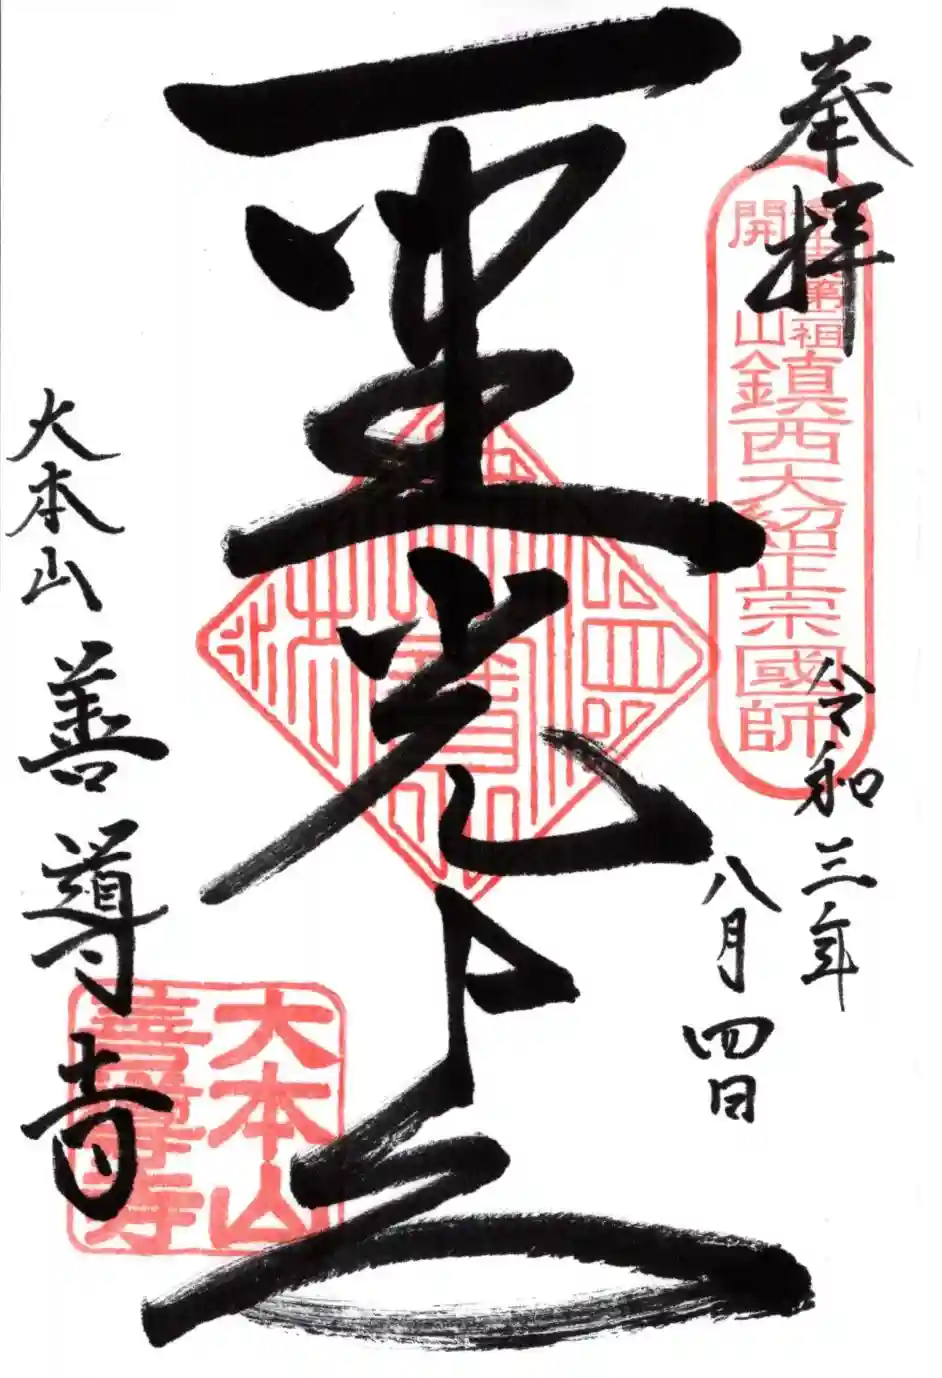 奉拝
開山
第二祖
鎮西大紹正宗國師
令和三年
八月四日
聖光上人
大本山善導寺
大本山
善導寺